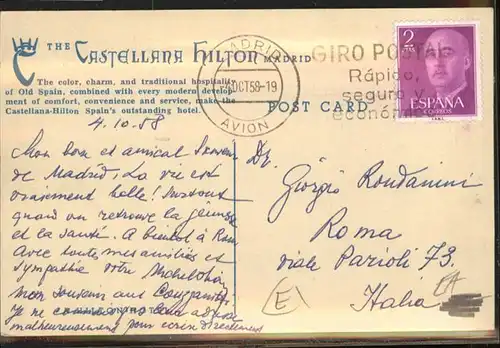 THE CASTELLANA HILTON MADRID
The color, charm, and traditional hospitality
of Old Spain, combined with every modern develop-
ment of comfort, convenience and service, make the
Castellana-Hilton Spain's outstanding hotel.
POST CARD
MADRID
OCT58-19
AVION
GIRO POSTAL
Rápido,
seguro y
económico
2
PTAS
ESPAÑA
CORREOS
4.10.58
Mon bon et amical souvenir
de Madrid. La vie est
vraiment belle! Surtout
quand on retrouve la jeunesse
et la santé. A bientôt à Rome
Avec toutes mes amitiés et
sympathie votre
mon souvenir aux
Je ne pas leur adresse
malheureusement pour écrire directement
Dr.
Giorgio Rondanini
Roma
viale Parioli 73.
Italia
E